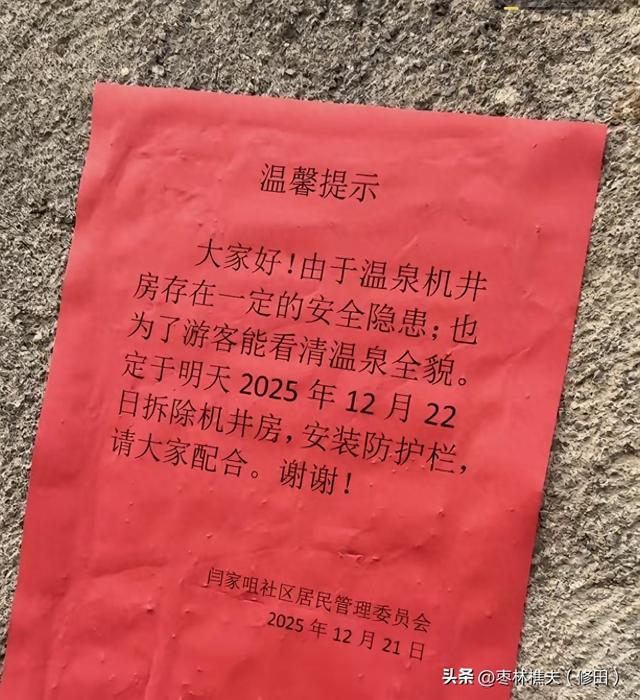 温馨提示
大家好！由于温泉机井
房存在一定的安全隐患；也
为了游客能看清温泉全貌。
定于明天 2025 年 12 月 22
日拆除机井房，安装防护栏，
请大家配合。谢谢！
闫家咀社区居民管理委员会
2025 年 12 月 21 日
头条 @枣林樵夫（修田）